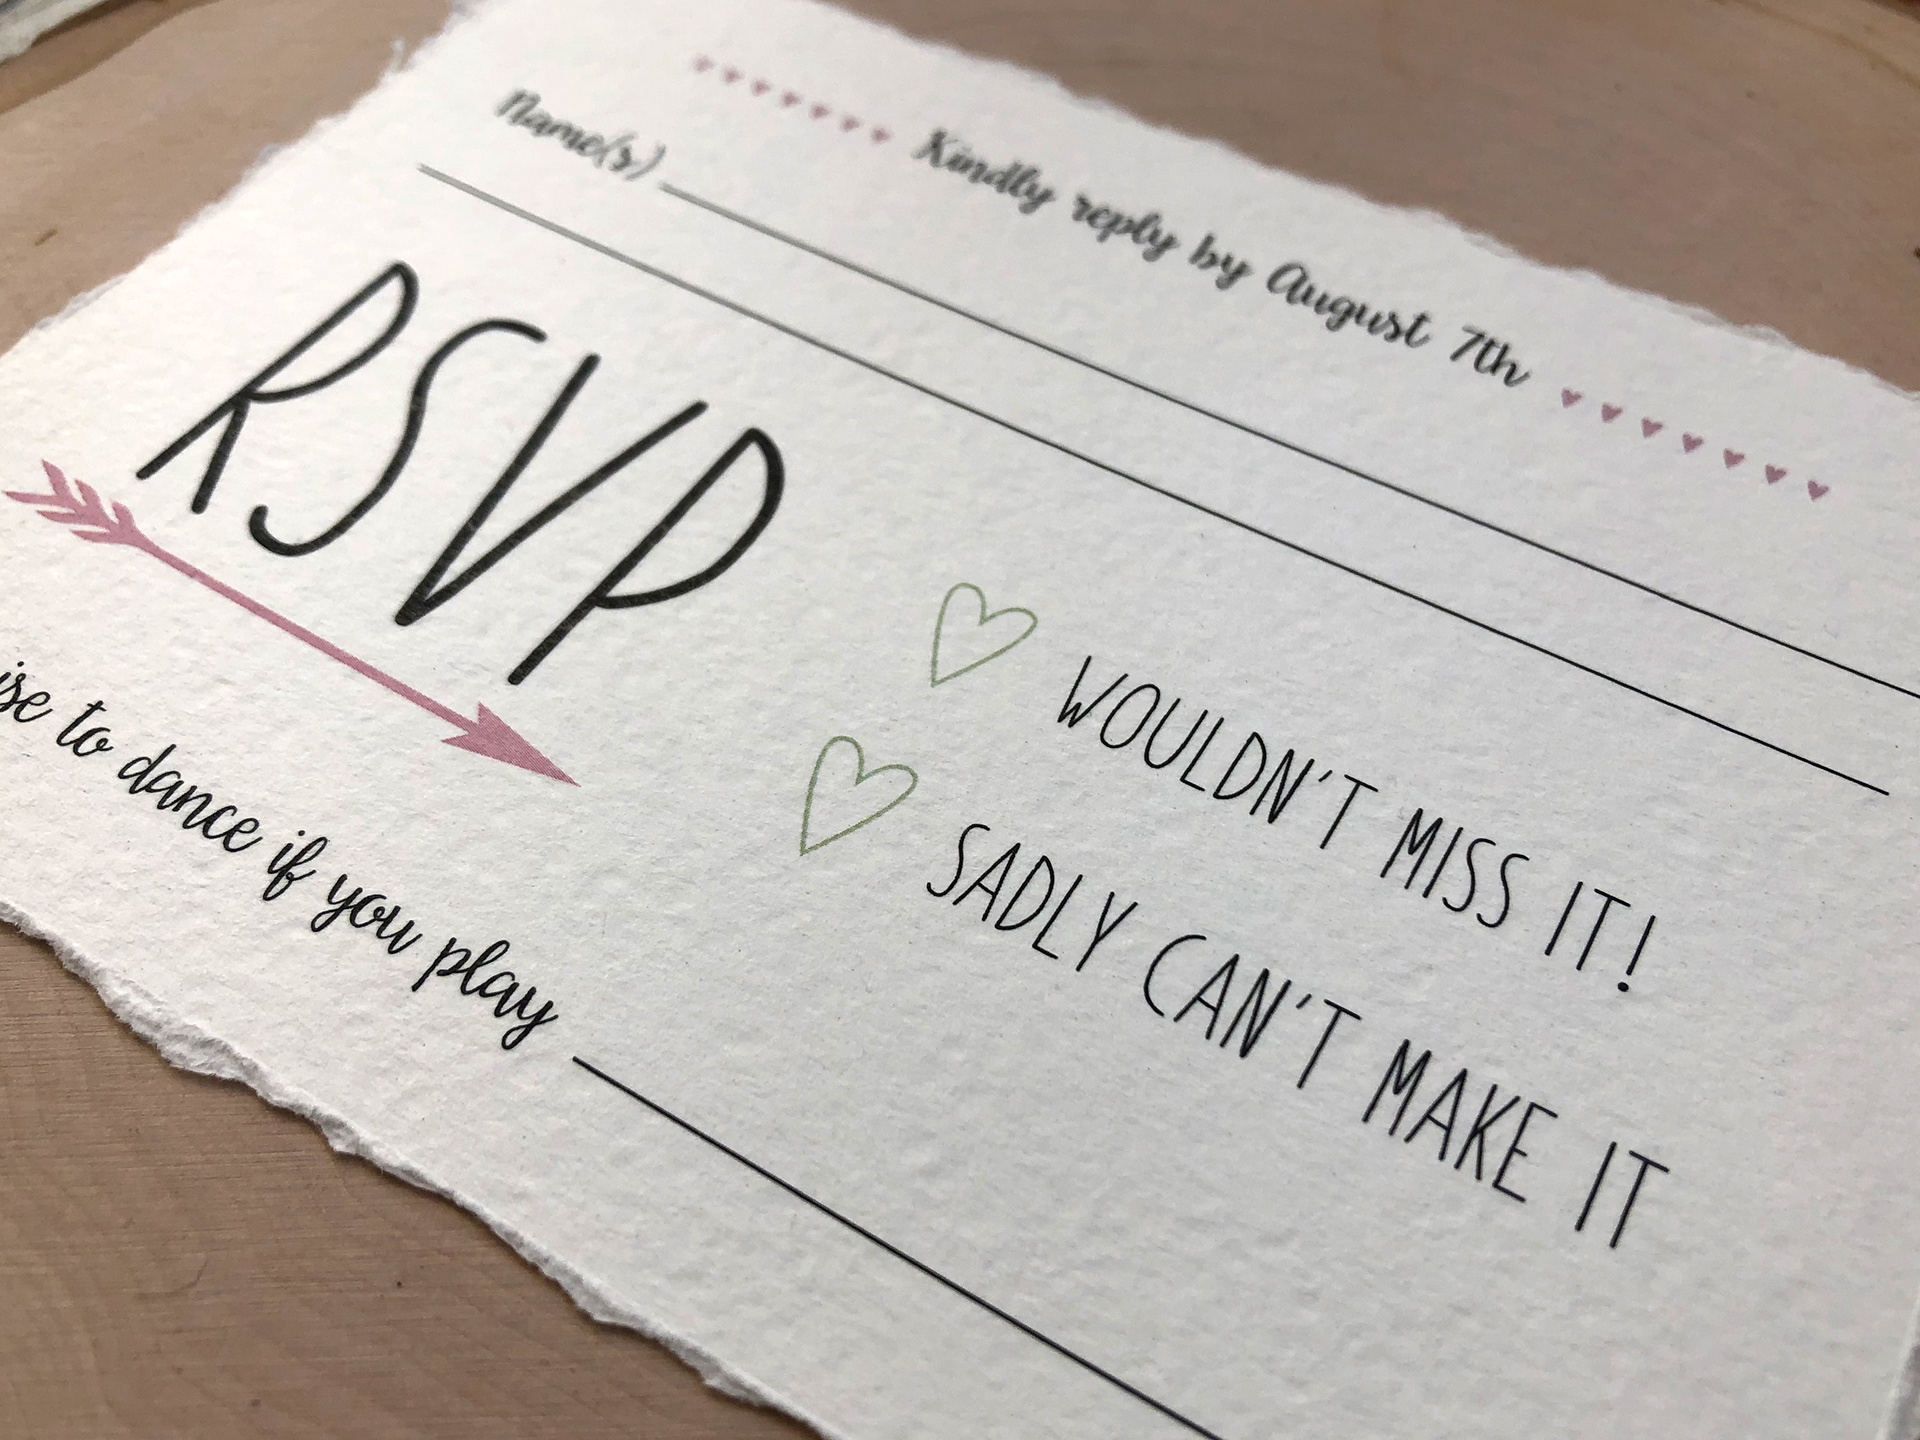 Kindly reply by August 7th
Name(s)
RSVP
WOULDN'T MISS IT!
SADLY CAN'T MAKE IT
to dance if you play